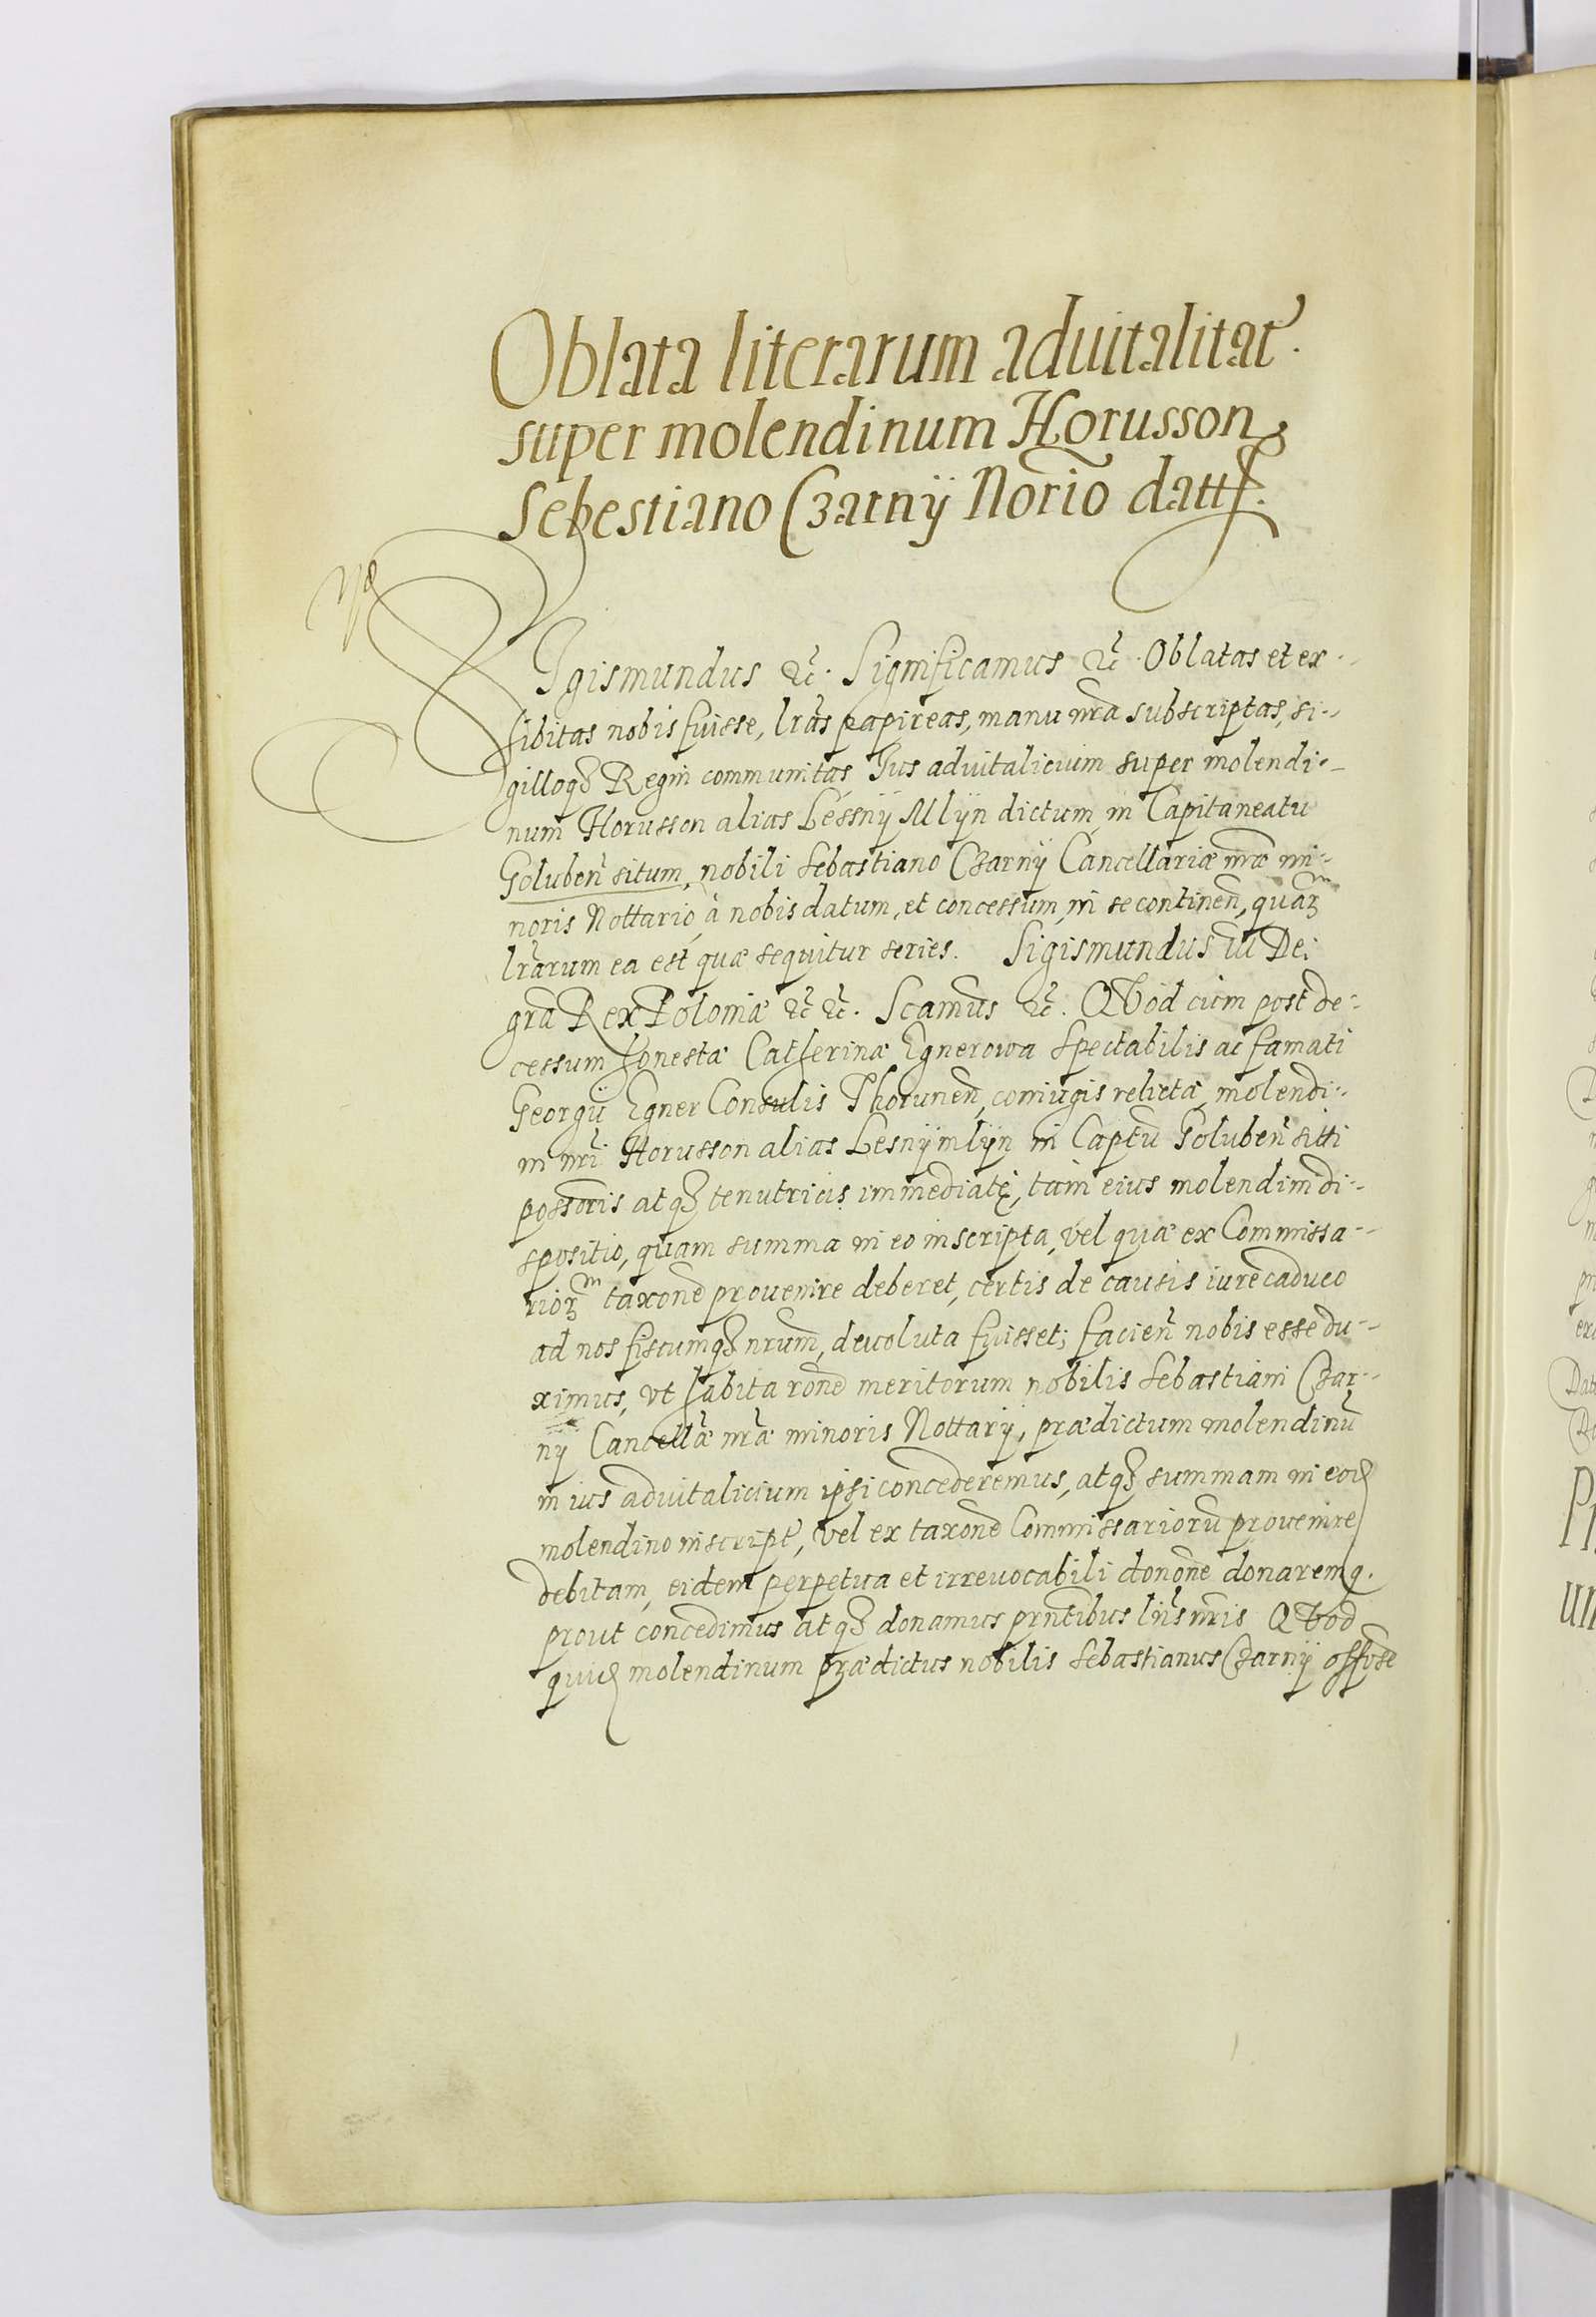 Oblata literarum aduitalitat̃.
super molendinum Horusson
Sebestiano Czarnÿ Nor̃io datt
SIgismundus &c̃. Significamus &c̃. Oblatas et ex-
hibitas nobis fuisse, lrãs papireas, manu nrã subscriptas, si-
gilloq3 Regni communitas, Jus aduitalicium super molendi-
num Horusson alias Lessnÿ Mlÿn dictum in Capitaneatu
Goluben̄ situm, nobili Sebastiano Czarnÿ Cancellariæ nr̃æ mi-
noris Nottario, à nobis datum, et concessum, in se continen̄, quar3m
lrãrum ea est quæ sequitur series. Sigismundus iu Dei
grã Rex Poloniæ &c̃ &c̃. Scamus̃ &c̃. QVod cum post de-
cessum honestæ Catherinæ Egnerowa Spectabilis ac famati
Georgÿ Egner Consulis Thorunen̄, coniugis relictæ, molendi-
ni nrĩ Horusson alias Lesnÿmlÿn in Captũ Goluben̄ sitti
possoris̃ atq3 tenutricis immediatę, tam eius molendini di-
spositio, quam summa in eo inscripta, vel quæ ex Commissa-
rior3m taxonẽ prouenire deberet, certis de causis iure caduco
ad nos fiscumq3 nrum̃, deuoluta fuisset; facien̄ nobis esse du-
ximus, vt habita ronẽ meritorum nobilis Sebastiani Czar-
nÿ Cancellæ̃ nræ̃ minoris Nottarÿ, prædictum molendinũ
in ius aduitalicium ipsi concederemus, atq3 summam in eod
molendino inscript̃, vel ex taxonẽ Commissariorũ prouenire
debitam, eidem perpetua et irreuocabili dononẽ donaremq.
prout concedimus atq3 donamus prñtibus lr̃is nr̃is QVod
quid molendinum prædictus nobilis Sebastianus Czarnÿ